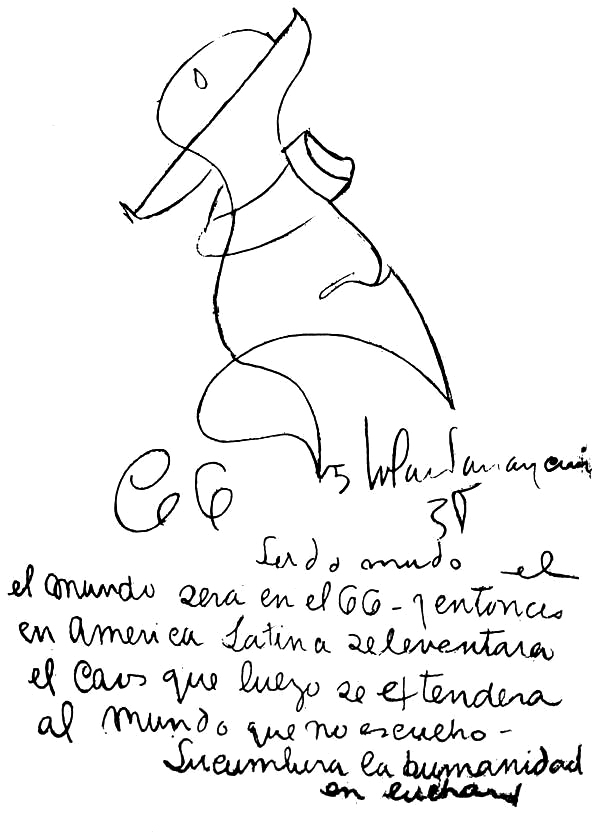 66
Sordo mudo el
el mundo sera en el 66 - y entonces
en America Latina se leventara
el Caos que luego se extendera
al mundo que no escucho -
Sucumbira la humanidad
en luchas